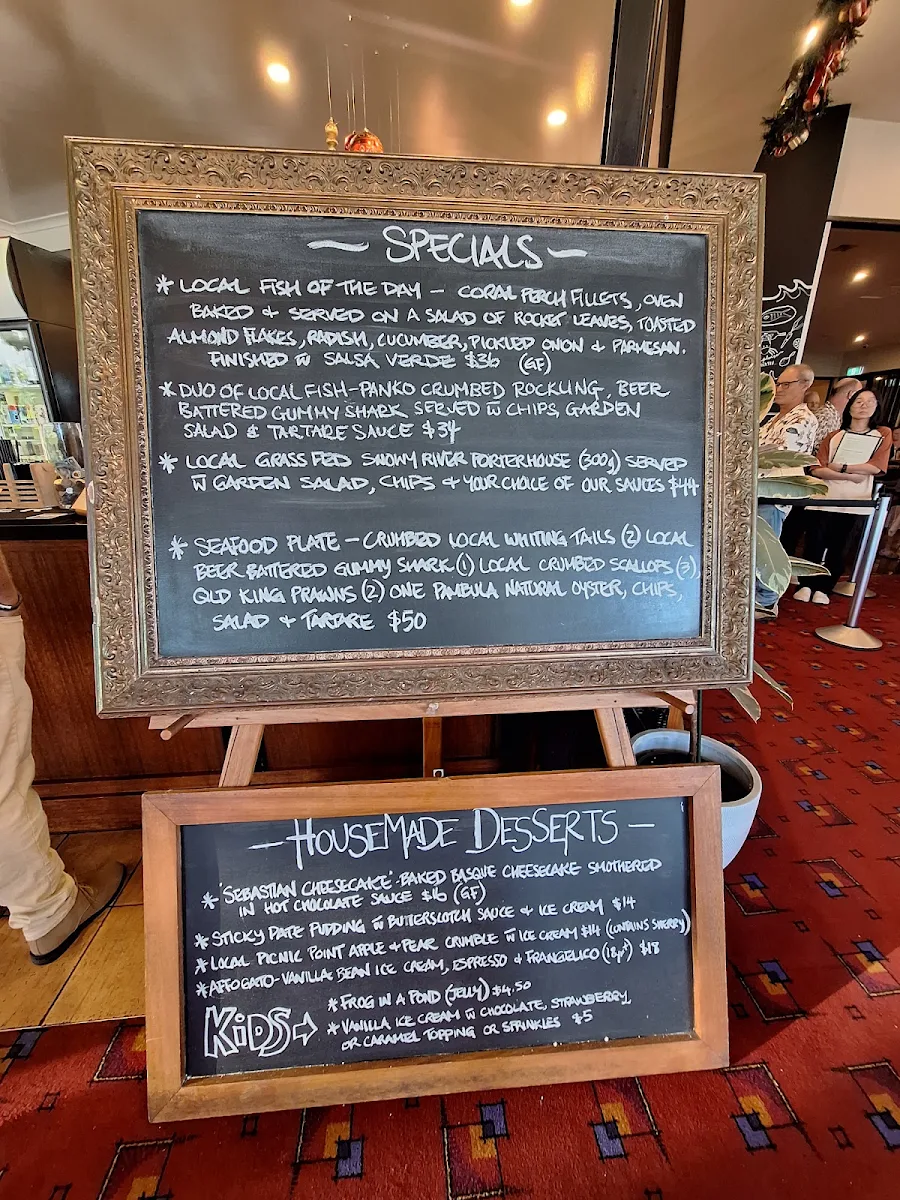 ~ SPECIALS ~
* LOCAL FISH OF THE DAY - CORAL PERCH FILLETS, OVEN
BAKED & SERVED ON A SALAD OF ROCKET LEAVES, TOASTED
ALMOND FLAKES, RADISH, CUCUMBER, PICKLED ONION & PARMESAN.
FINISHED W SALSA VERDE $36 (GF)
* DUO OF LOCAL FISH-PANKO CRUMBED ROCKLING, BEER
BATTERED GUMMY SHARK SERVED W CHIPS, GARDEN
SALAD & TARTARE SAUCE $34
* LOCAL GRASS FED SNOWY RIVER PORTERHOUSE (300g) SERVED
W GARDEN SALAD, CHIPS & YOUR CHOICE OF OUR SAUCES $44
* SEAFOOD PLATE - CRUMBED LOCAL WHITING TAILS (2) LOCAL
BEER BATTERED GUMMY SHARK (1) LOCAL CRUMBED SCALLOPS (3),
QLD KING PRAWNS (2) ONE PAMBULA NATURAL OYSTER, CHIPS,
SALAD & TARTARE $50
- HOUSEMADE DESSERTS -
* 'SEBASTIAN CHEESECAKE'-BAKED BASQUE CHEESECAKE SMOTHERED
IN HOT CHOCOLATE SAUCE $16 (GF)
* STICKY DATE PUDDING W BUTTERSCOTCH SAUCE & ICE CREAM $14
* LOCAL PICNIC POINT APPLE & PEAR CRUMBLE W ICE CREAM $14 (CONTAINS SHERRY)
* AFFOGATO-VANILLA BEAN ICE CREAM, ESPRESSO & FRANGELICO (18+) $18
KIDS→
* FROG IN A POND (JELLY) $4.50
* VANILLA ICE CREAM W CHOCOLATE, STRAWBERRY,
OR CARAMEL TOPPING OR SPRINKLES $5